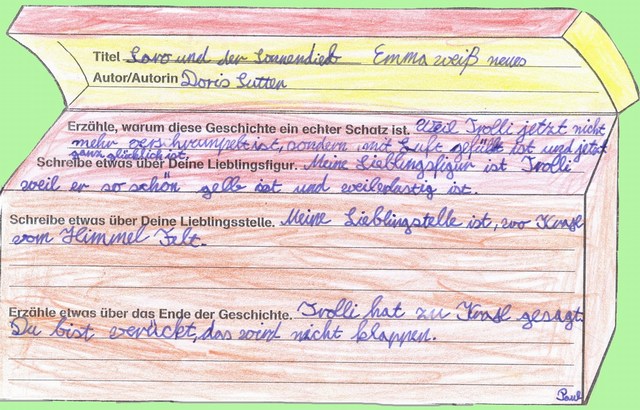 Titel Saro und der Sonnendieb Emma weiß neues
Autor/Autorin Doris Sutter
Erzähle, warum diese Geschichte ein echter Schatz ist. Weil Trolli jetzt nicht
mehr verschrumpelt ist, sondern mit Luft gefüllt ist und jetzt
ganz glücklich ist.
Schreibe etwas über Deine Lieblingsfigur. Meine Lieblingsfigur ist Trolli
weil er so schön gelb ist und weil er lustig ist.
Schreibe etwas über Deine Lieblingsstelle. Meine Lieblingstelle ist, wo
vom Himmel felt.
Erzähle etwas über das Ende der Geschichte. Trolli hat zu gesagt
Du bist verückt, das wird nicht klappen.
Paul